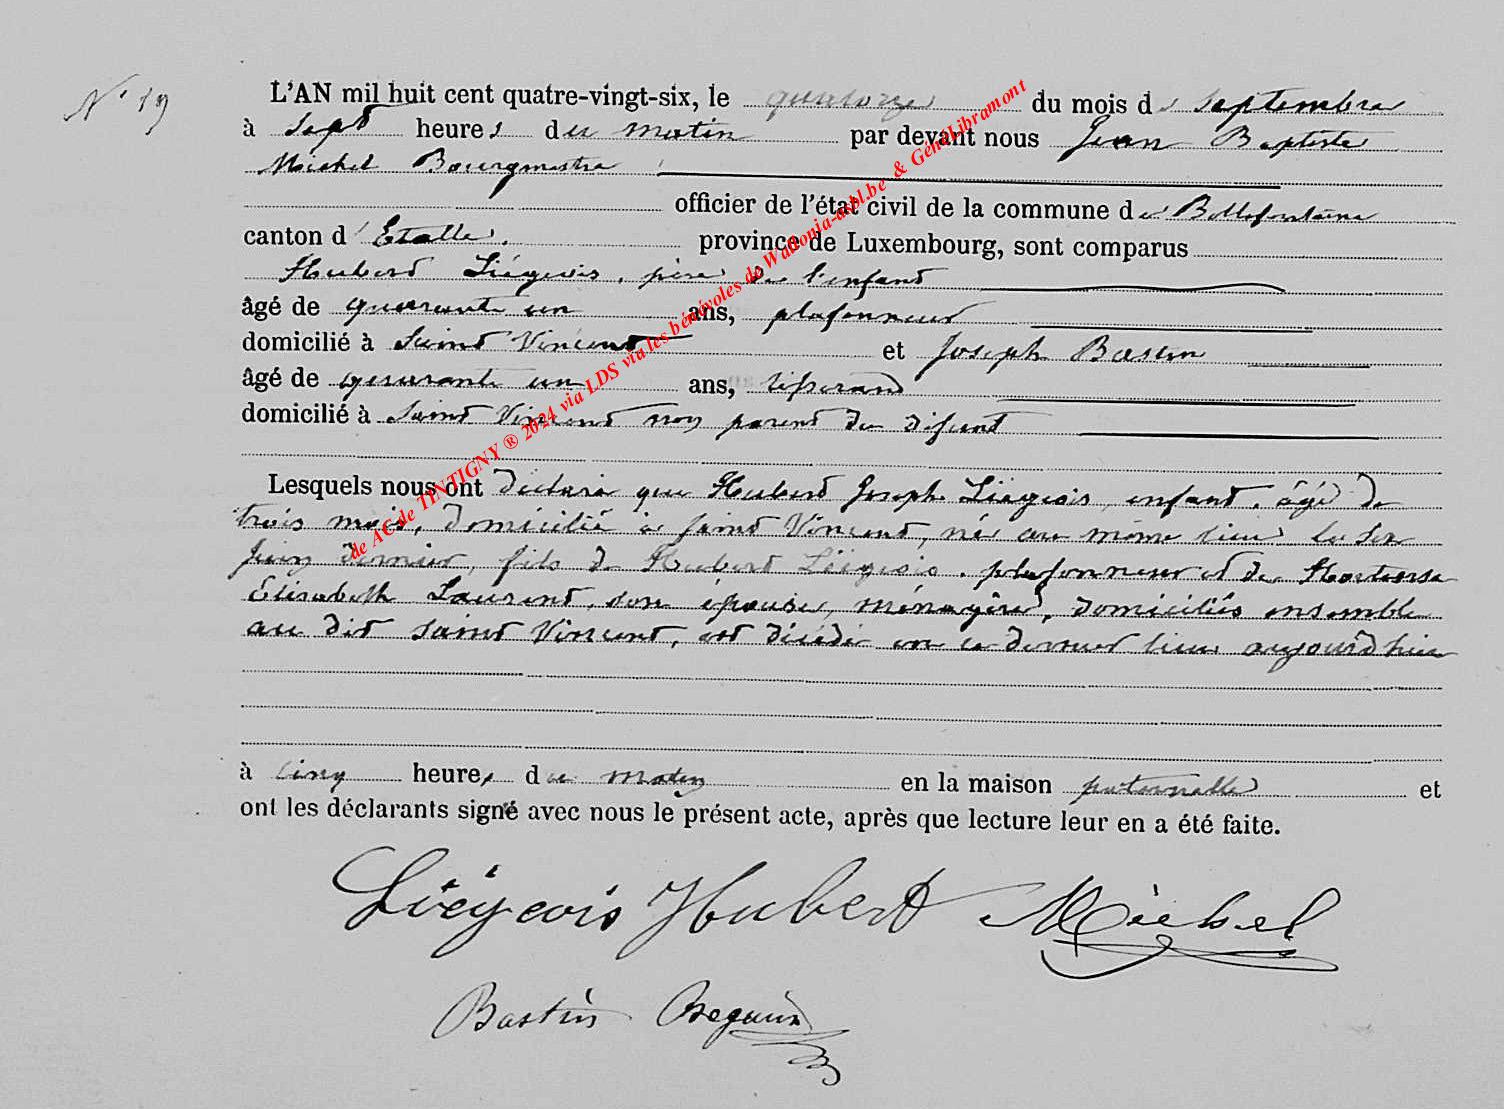 N° 19
L'AN mil huit cent quatre-vingt-six, le quatorze du mois de Septembre
à Sept heures du matin par devant nous Jean Baptiste
Michel Bourgmestre
officier de l'état civil de la commune de Bellefontaine
canton d'Etalle, province de Luxembourg, sont comparus
Hubert Liégeois, père de l'enfant
âgé de quarante un ans, plafonneur
domicilié à Saint Vincent et Joseph Bastin
âgé de quarante un ans, tisserand
domicilié à Saint Vincent non parent du défunt
Lesquels nous ont déclaré que Hubert Joseph Liégeois, enfant, âgé de
trois mois, domicilié à Saint Vincent, né au même lieu le six
juin dernier, fils de Hubert Liégeois, plafonneur et de Hortense
Elisabeth Laurent, son épouse, ménagère, domiciliés ensemble
au dit Saint Vincent, est décédé en ce dernier lieu aujourd'hui
à cinq heures du matin en la maison paternelle et
ont les déclarants signé avec nous le présent acte, après que lecture leur en a été faite.
Liégeois Hubert Michel
Bastin
de AC de TINTIGNY ® 2024 via LDS via les bénévoles de Wallonia-asbl.be & GénéLibramont